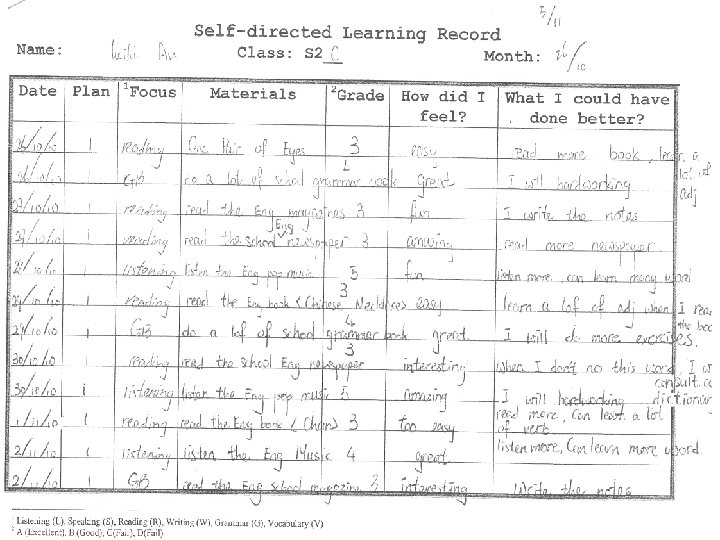 5/11
Self-directed Learning Record
Name: Class: S2 C Month: 26/10
Date Plan ¹Focus Materials ²Grade How did I feel? What I could have done better?
26/10/10 1 reading One Pair of Eyes 3 easy read more book, learn a lot of adj
26/10/10 1 GB do a lot of school grammar book 4 great I will hardworking
27/10/10 1 reading read the Eng magazines 3 fun I write the notes
27/10/10 1 reading read the school Eng newspaper 3 amazing read more newspaper
28/10/10 1 listening listen the Eng pop music 5 fun listen more, can learn many word
29/10/10 1 reading read the Eng book (Chinese Necklaces) 3 easy learn a lot of adj when I read the book
29/10/10 1 GB do a lot of school grammar book 4 great I will do more exercises.
30/10/10 reading read the school Eng newspaper 3 interesting when I don't no this word, I consult
30/10/10 1 listening listen the Eng pop music 5 amazing I will hardworking dictionary
1/11/10 1 reading read the Eng book 3 too easy read more, Can learn a lot of verb
2/11/10 1 listening listen the Eng Music 4 great listen more, Can learn more word.
2/11/10 1 GB read the Eng school magazine 3 interesting Write the notes
¹ Listening (L), Speaking (S), Reading (R), Writing (W), Grammar (G), Vocabulary (V)
² A (Excellent), B (Good), C(Fair), D(Fail)